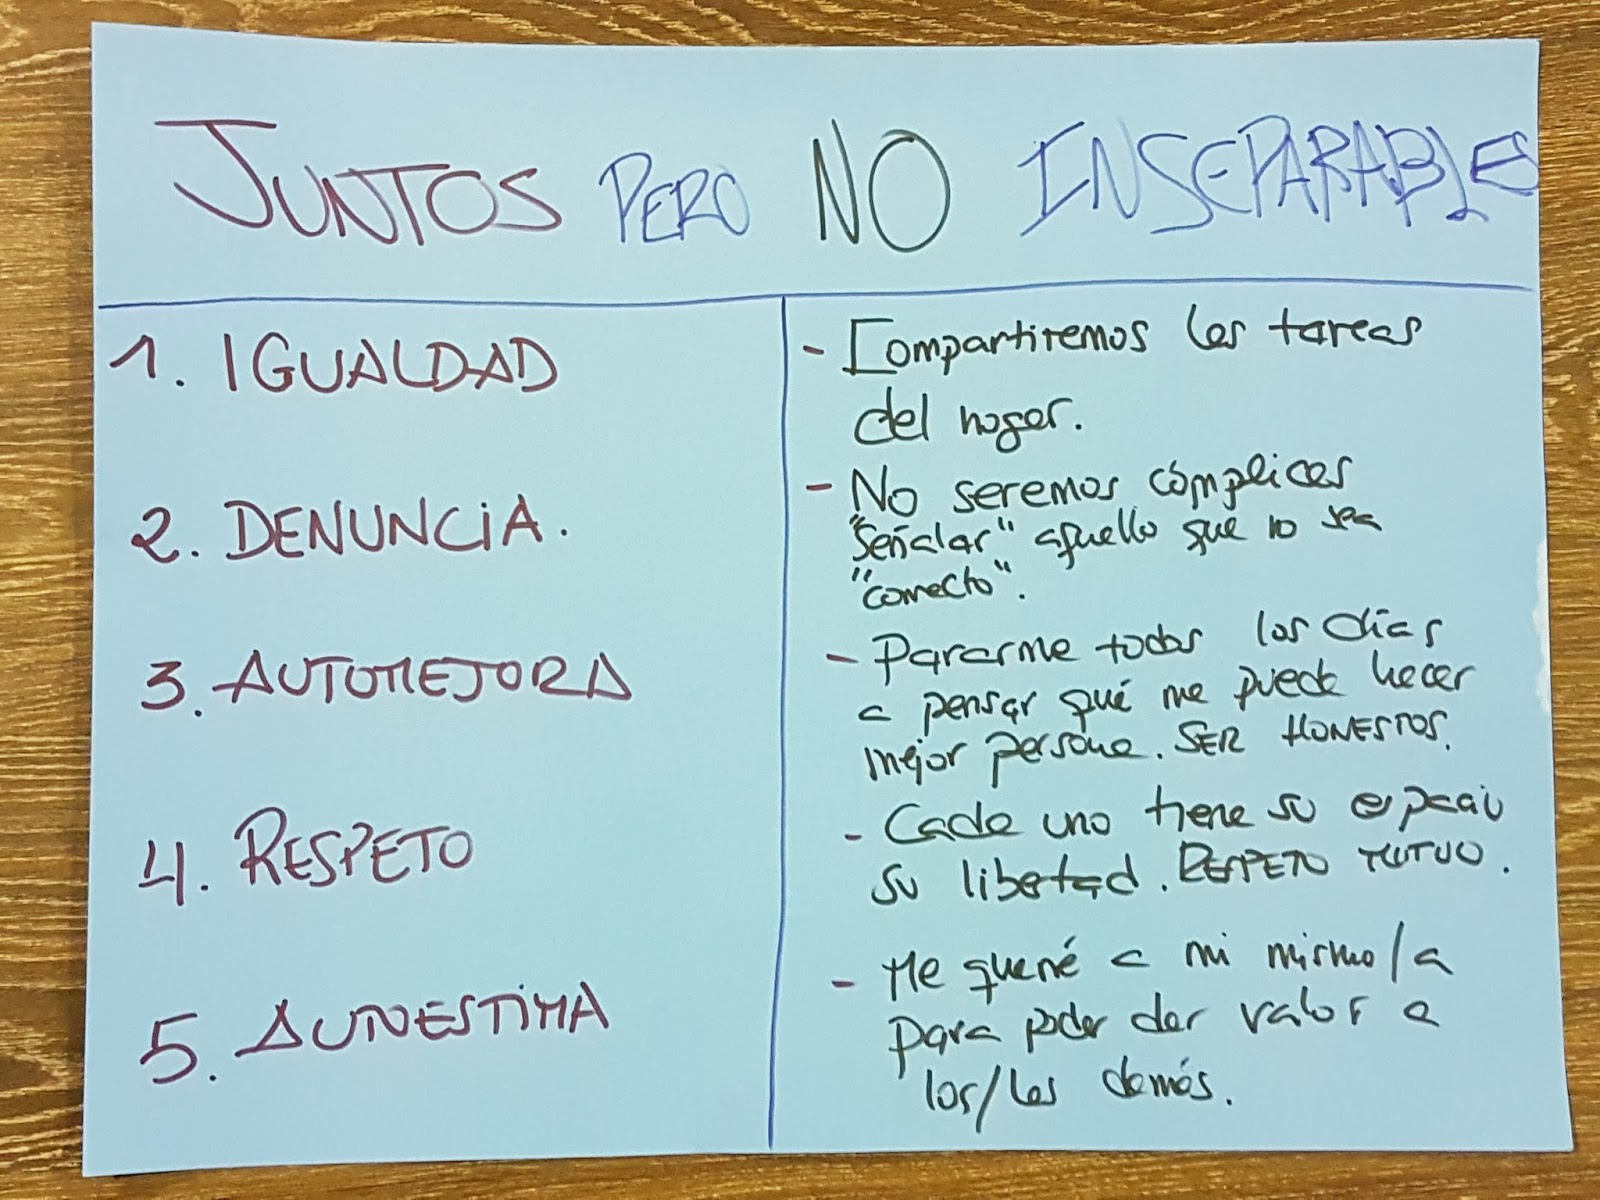 JUNTOS PERO NO INSEPARABLES
1. IGUALDAD
- Compartiremos las tareas
del hogar.
2. DENUNCIA.
- No seremos cómplices
"señalar" aquello que no sea
"correcto".
3. AUTOMEJORA
- Pararme todos los días
a pensar qué me puede hacer
mejor persona. SER HONESTOS.
4. RESPETO
- Cada uno tiene su espacio
su libertad. RESPETO MUTUO.
5. AUTOESTIMA
- Me querré a mi mismo/a
para poder dar valor a
los/las demás.